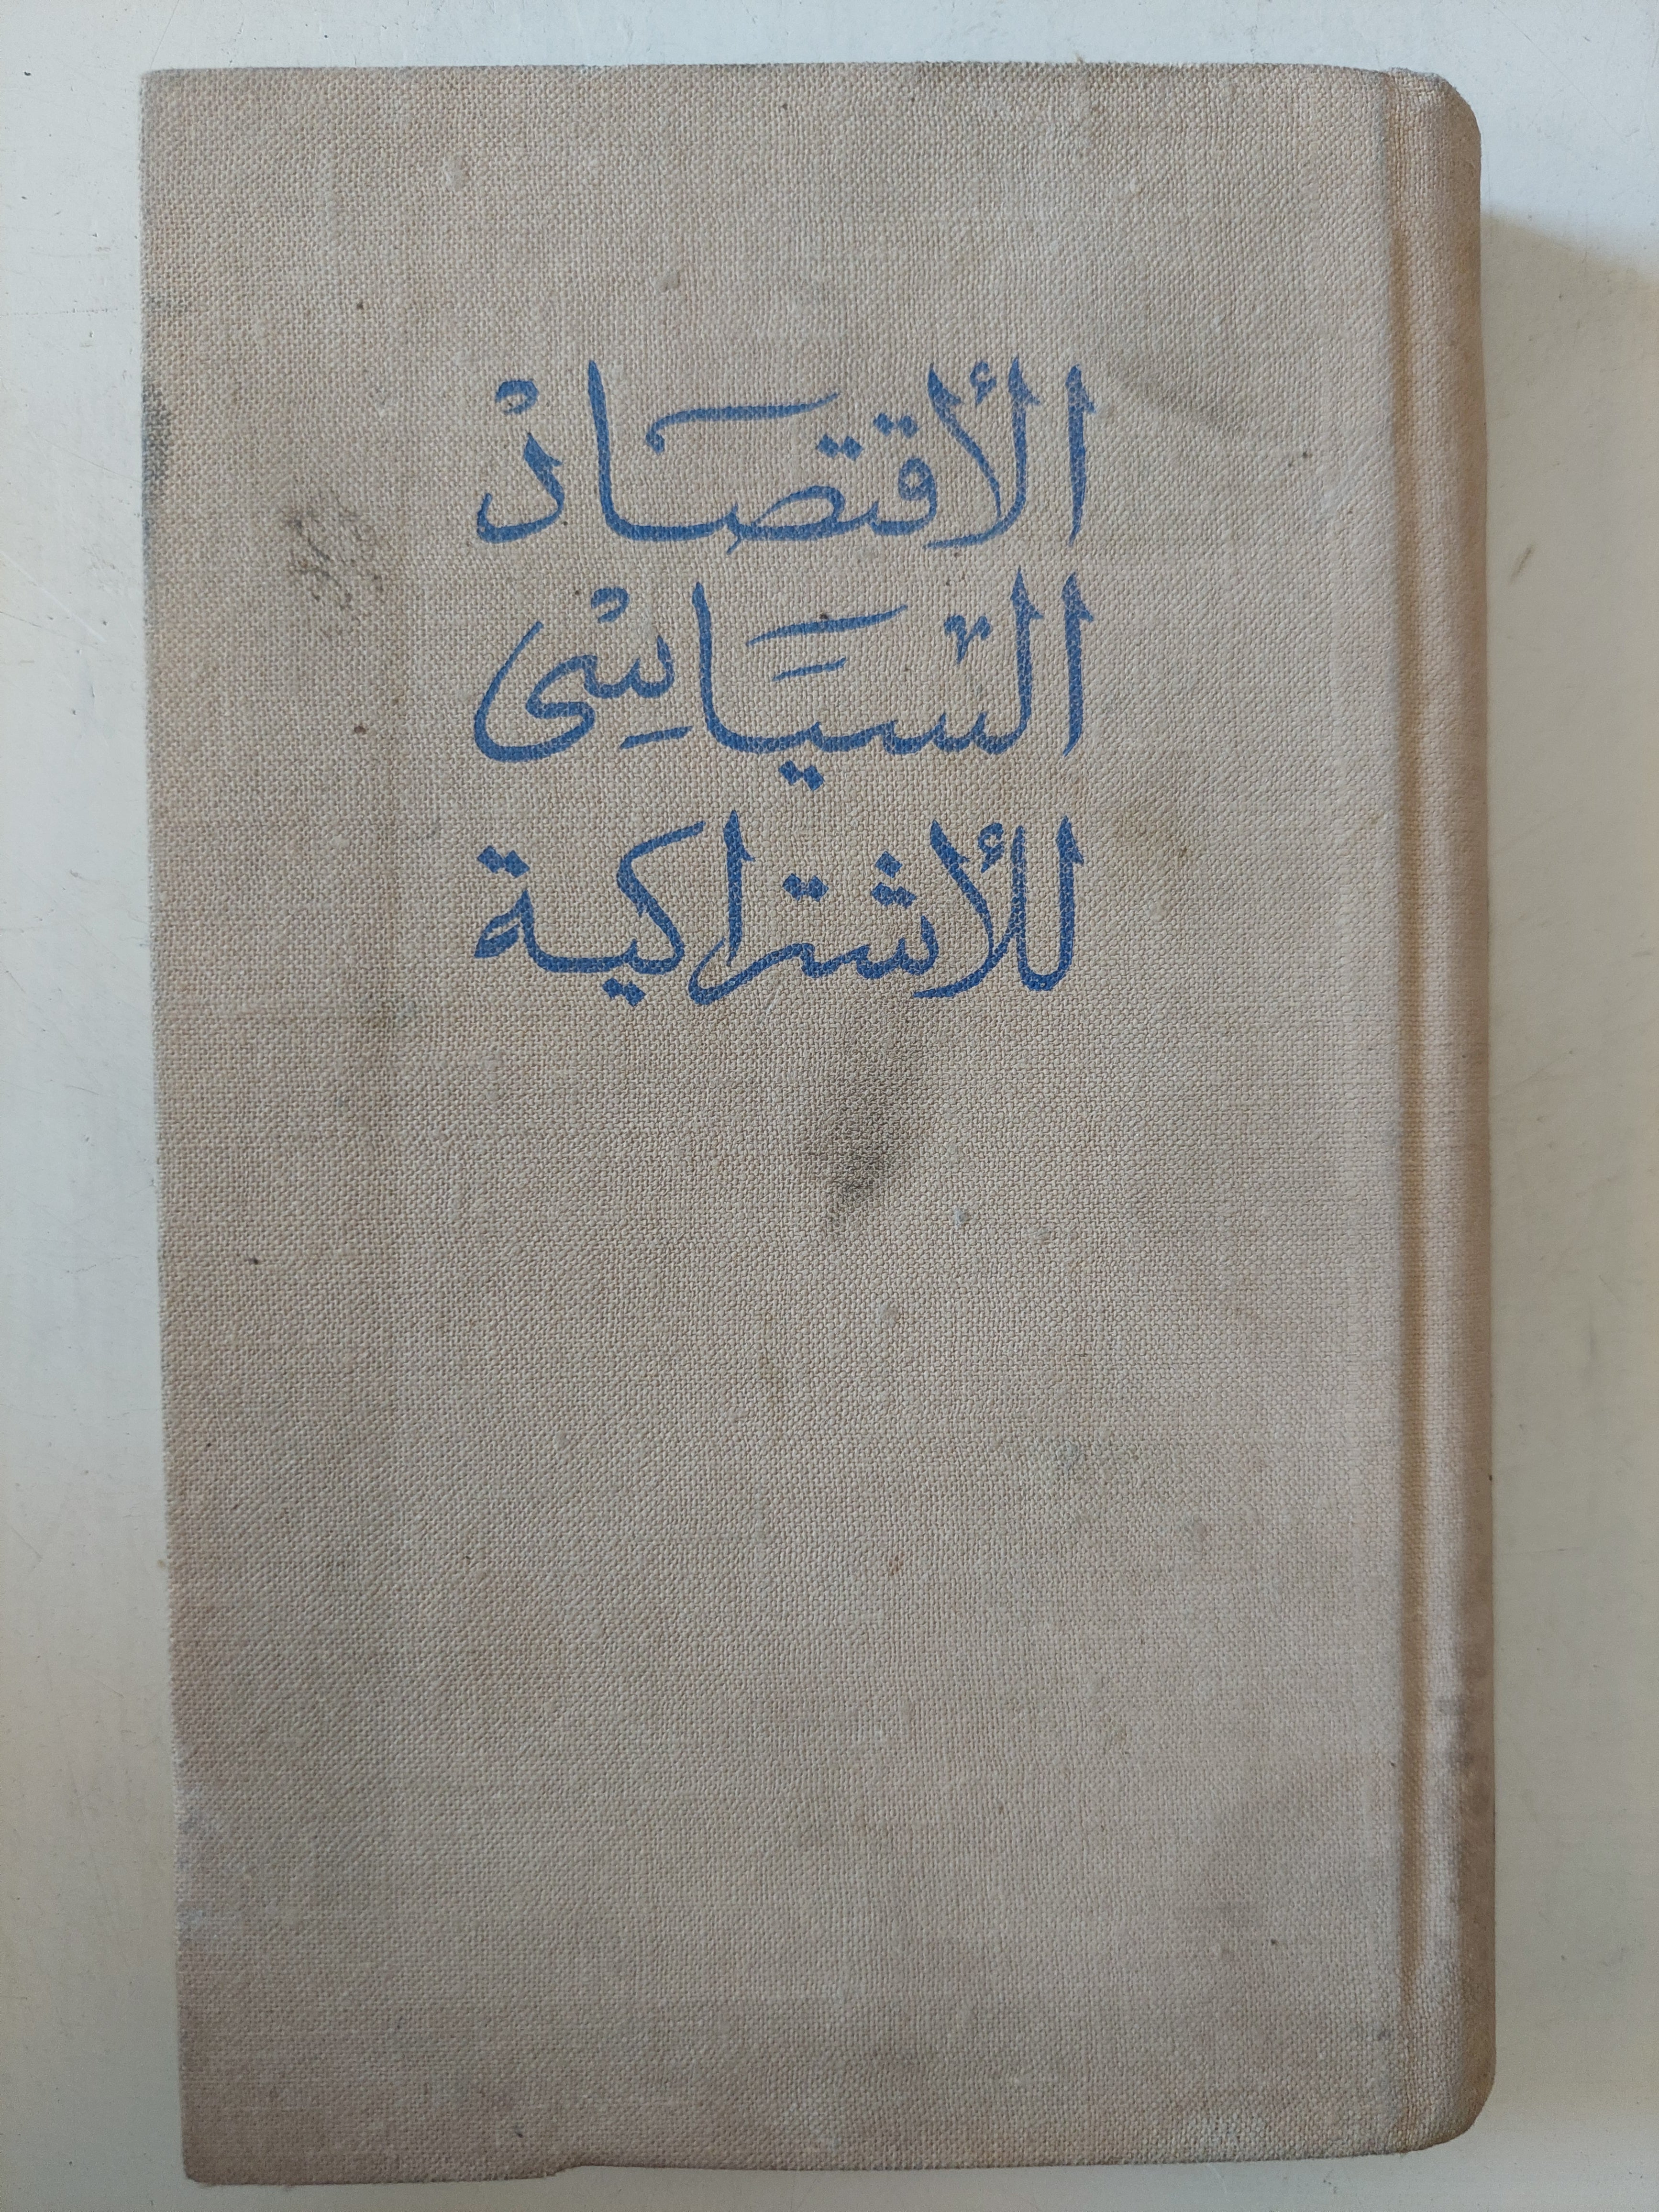 الأقتصَادْ
السّيَاسِىْ
للأشتراكية